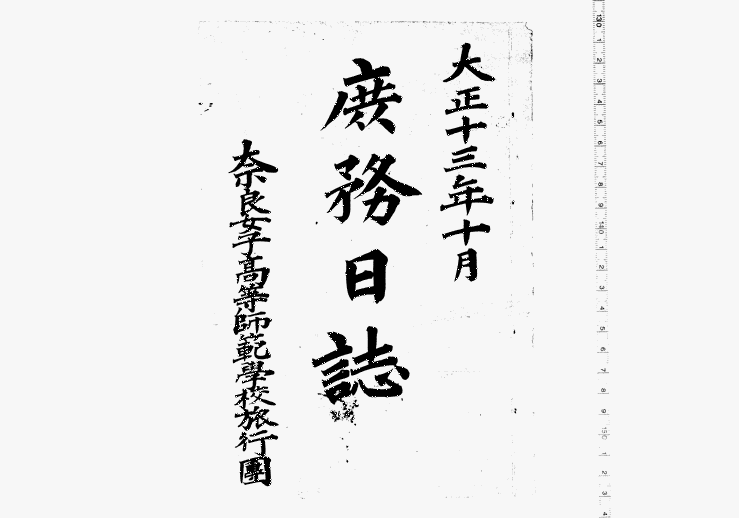 大正十三年十月
庶務日誌
奈良女子高等師範學校旅行團